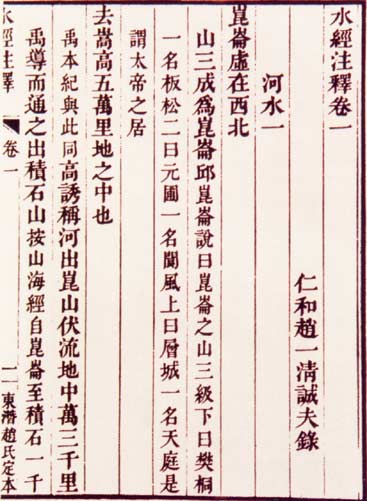 水經注釋卷一
仁和趙一清誠夫錄
河水一
崑崙虛在西北
山三成爲崑崙邱崑崙說曰崑崙之山三級下曰樊桐
一名板松二曰元圃一名閬風上曰層城一名天庭是
謂太帝之居
去嵩高五萬里地之中也
禹本紀與此同高誘稱河出崑山伏流地中萬三千里
禹導而通之出積石山按山海經自崑崙至積石一千
水經注釋 卷一 一 東潛趙氏定本